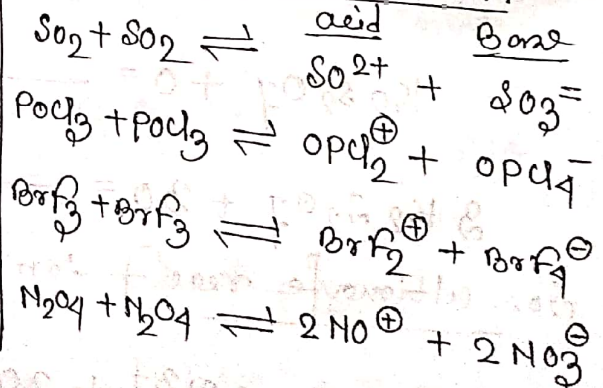 acid Base
SO₂ + SO₂ ⇌ SO²⁺ + SO₃⁼
POCl₃ + POCl₃ ⇌ OPCl₂⊕ + OPCl₄⁻
BrF₃ + BrF₃ ⇌ BrF₂⊕ + BrF₄⊖
N₂O₄ + N₂O₄ ⇌ 2 NO⊕ + 2 NO₃⊖